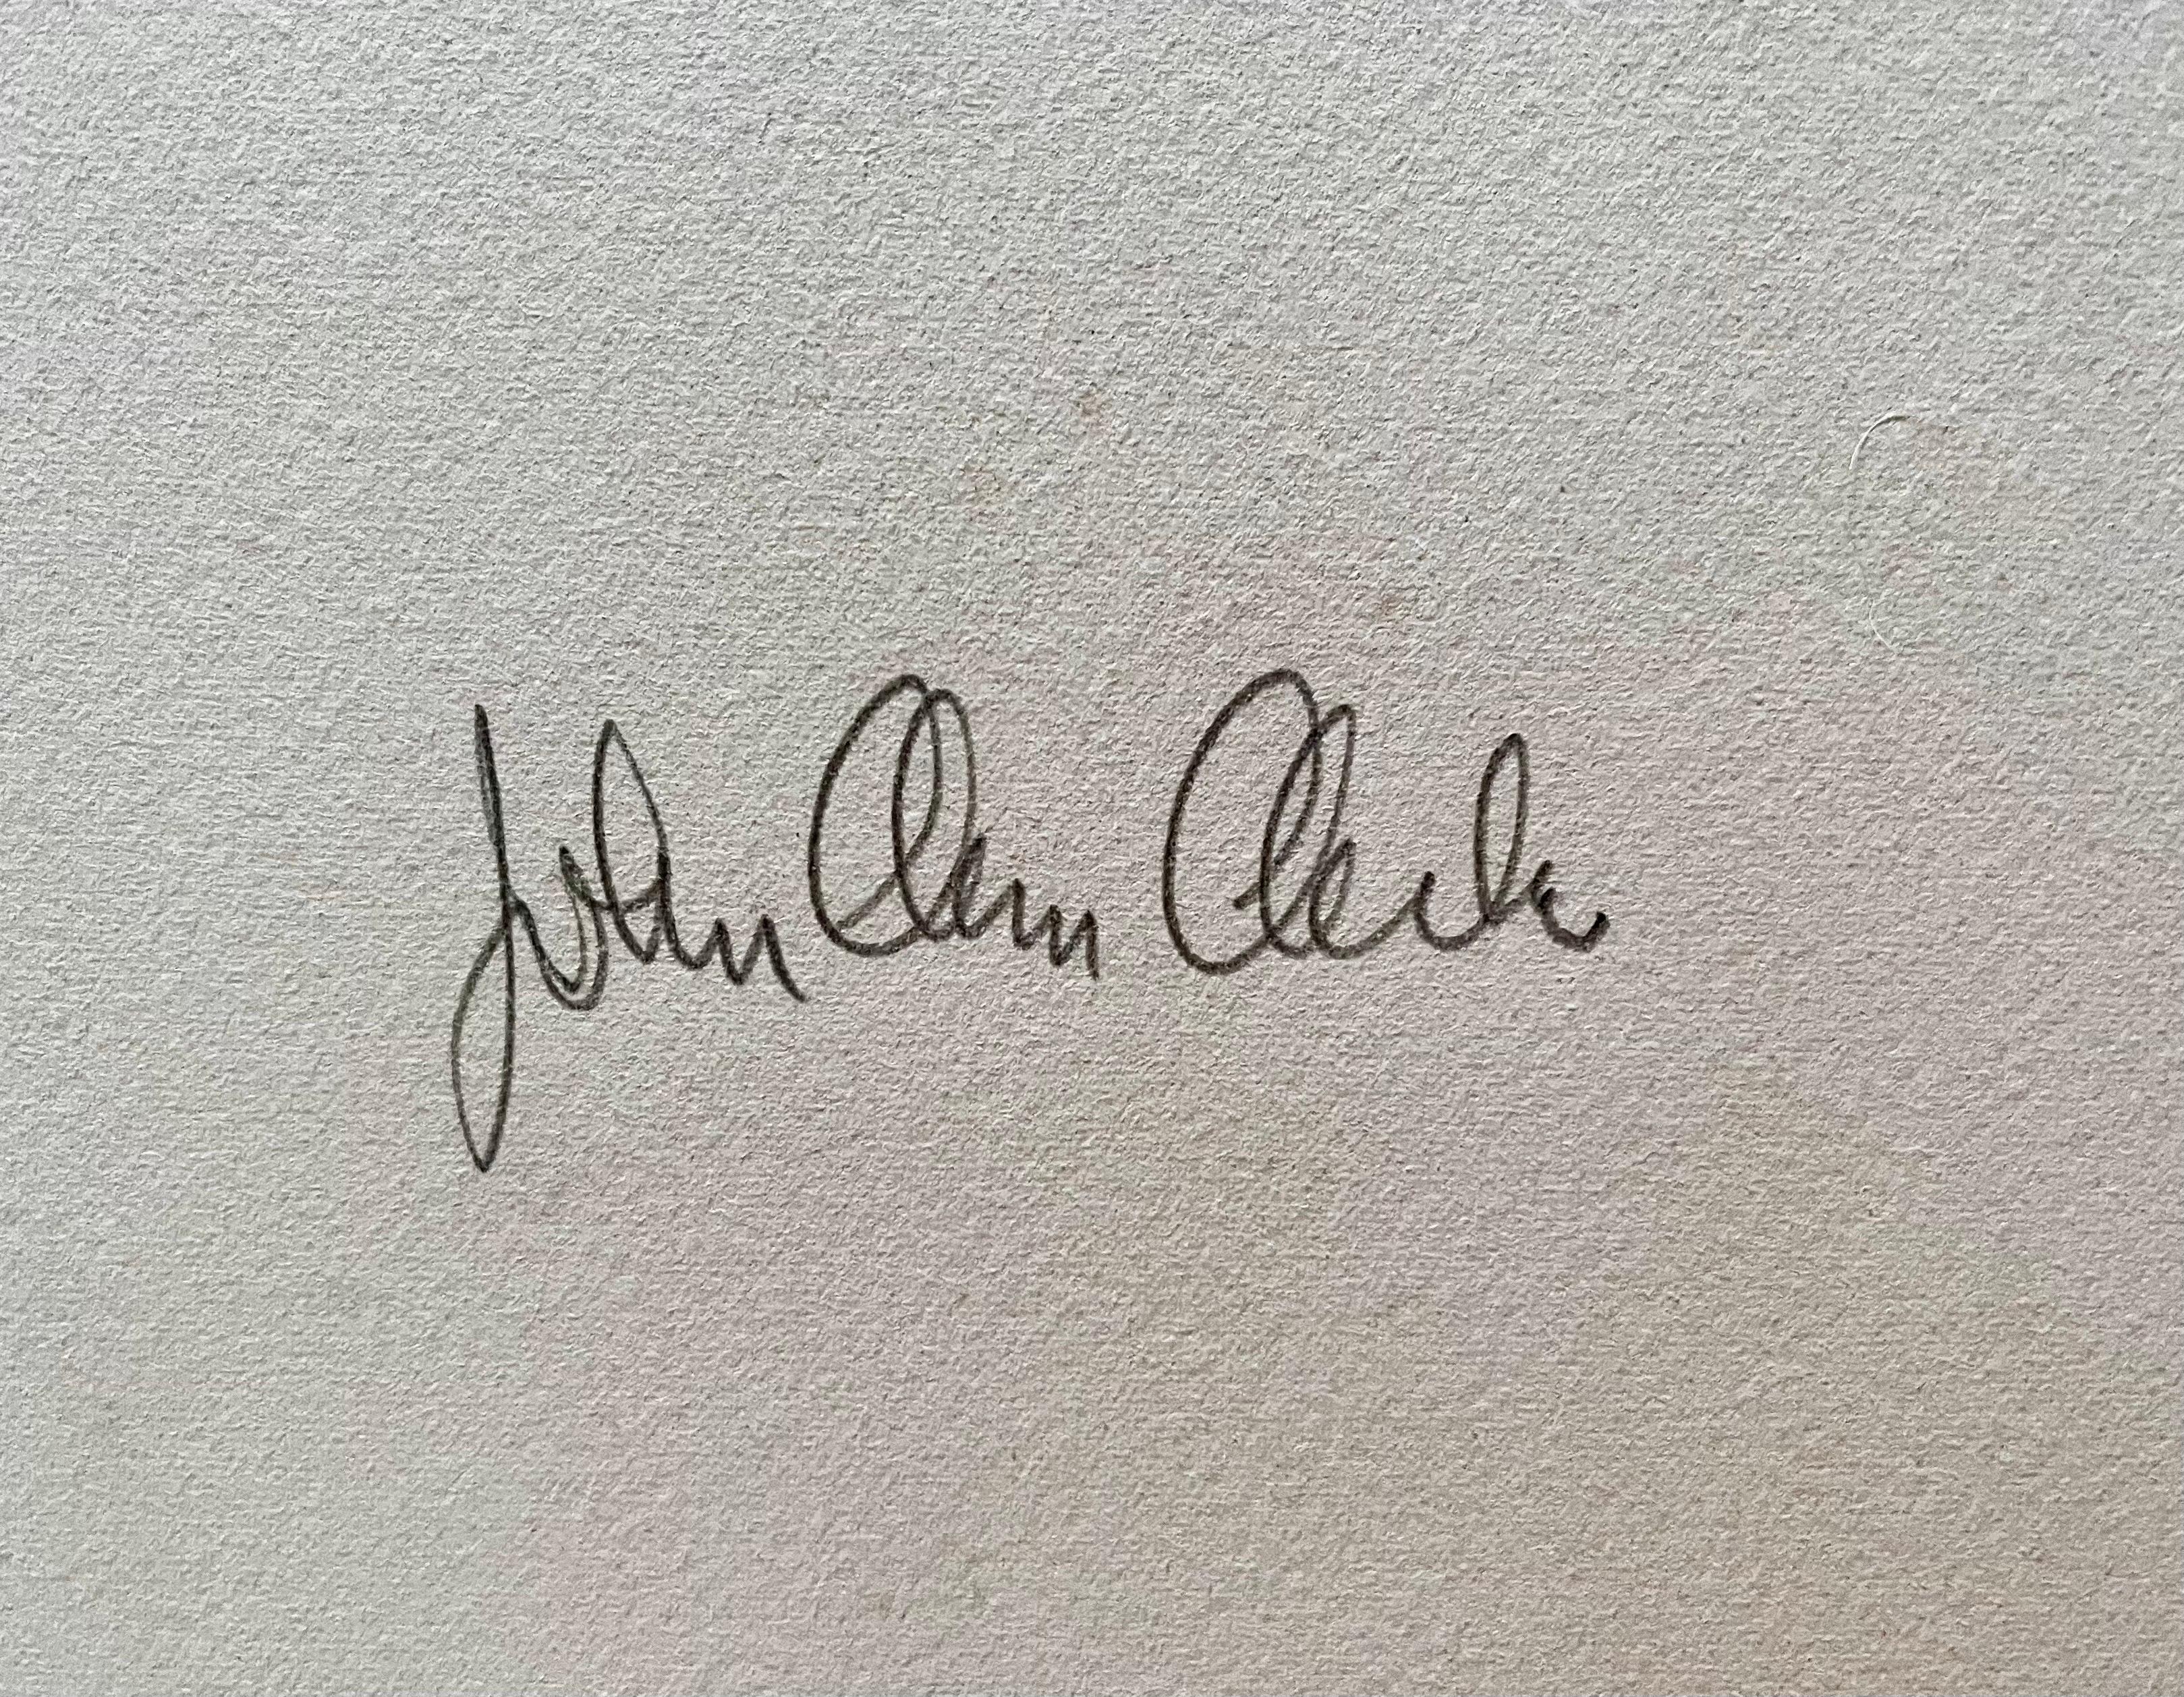 John Clem Clarke